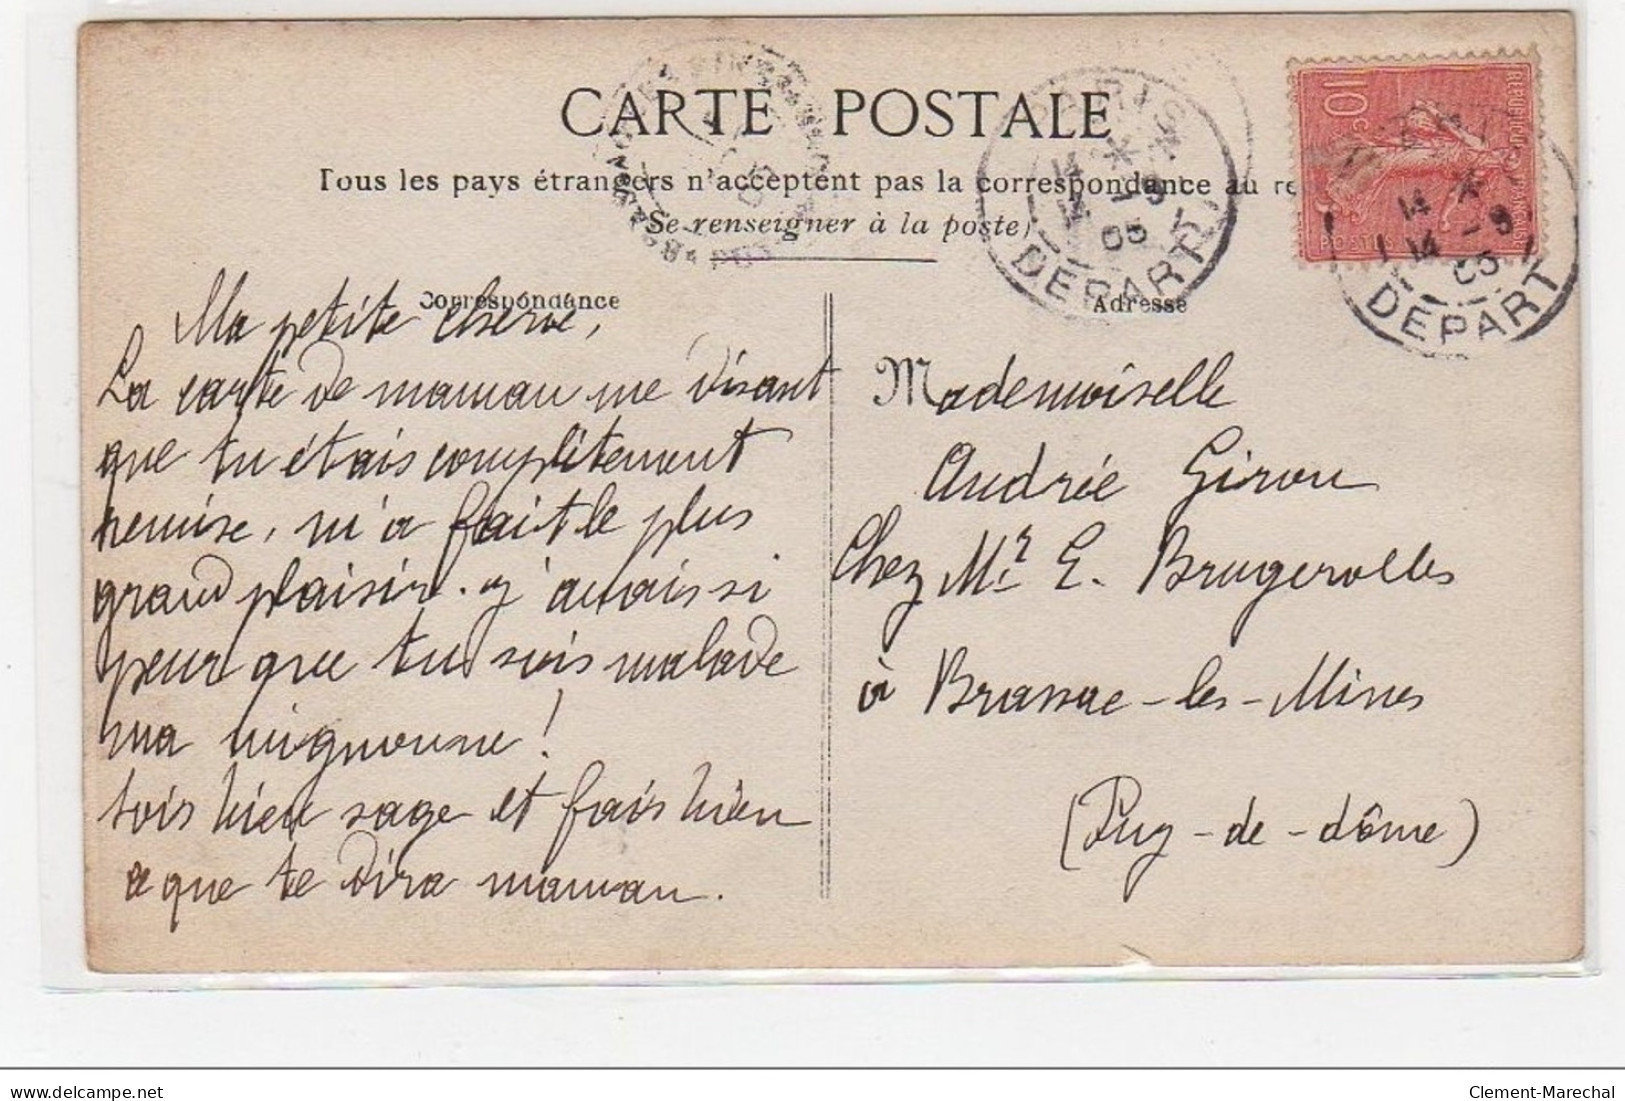 CARTE POSTALE
Tous les pays étrangers n'acceptent pas la correspondance au re
Se renseigner à la poste)
Correspondance
Adresse
Ma petite cherie,
La carte de maman me disant
que tu étais complètement
remise, m'a fait le plus
grand plaisir. j'avais si
peur que tu sois malade
ma mignonne!
sois bien sage et fais bien
ce que te dira maman.
Mademoiselle
Andrée Giron
Chez Mr. E. Brugerolles
à Brassac-les-Mines
(Puy-de-dôme)
10 c
POSTES
PARIS
14
14 -9
05
DEPART
14
14 -9
05
DEPART
www.delcampe.net
Clement-Marechal